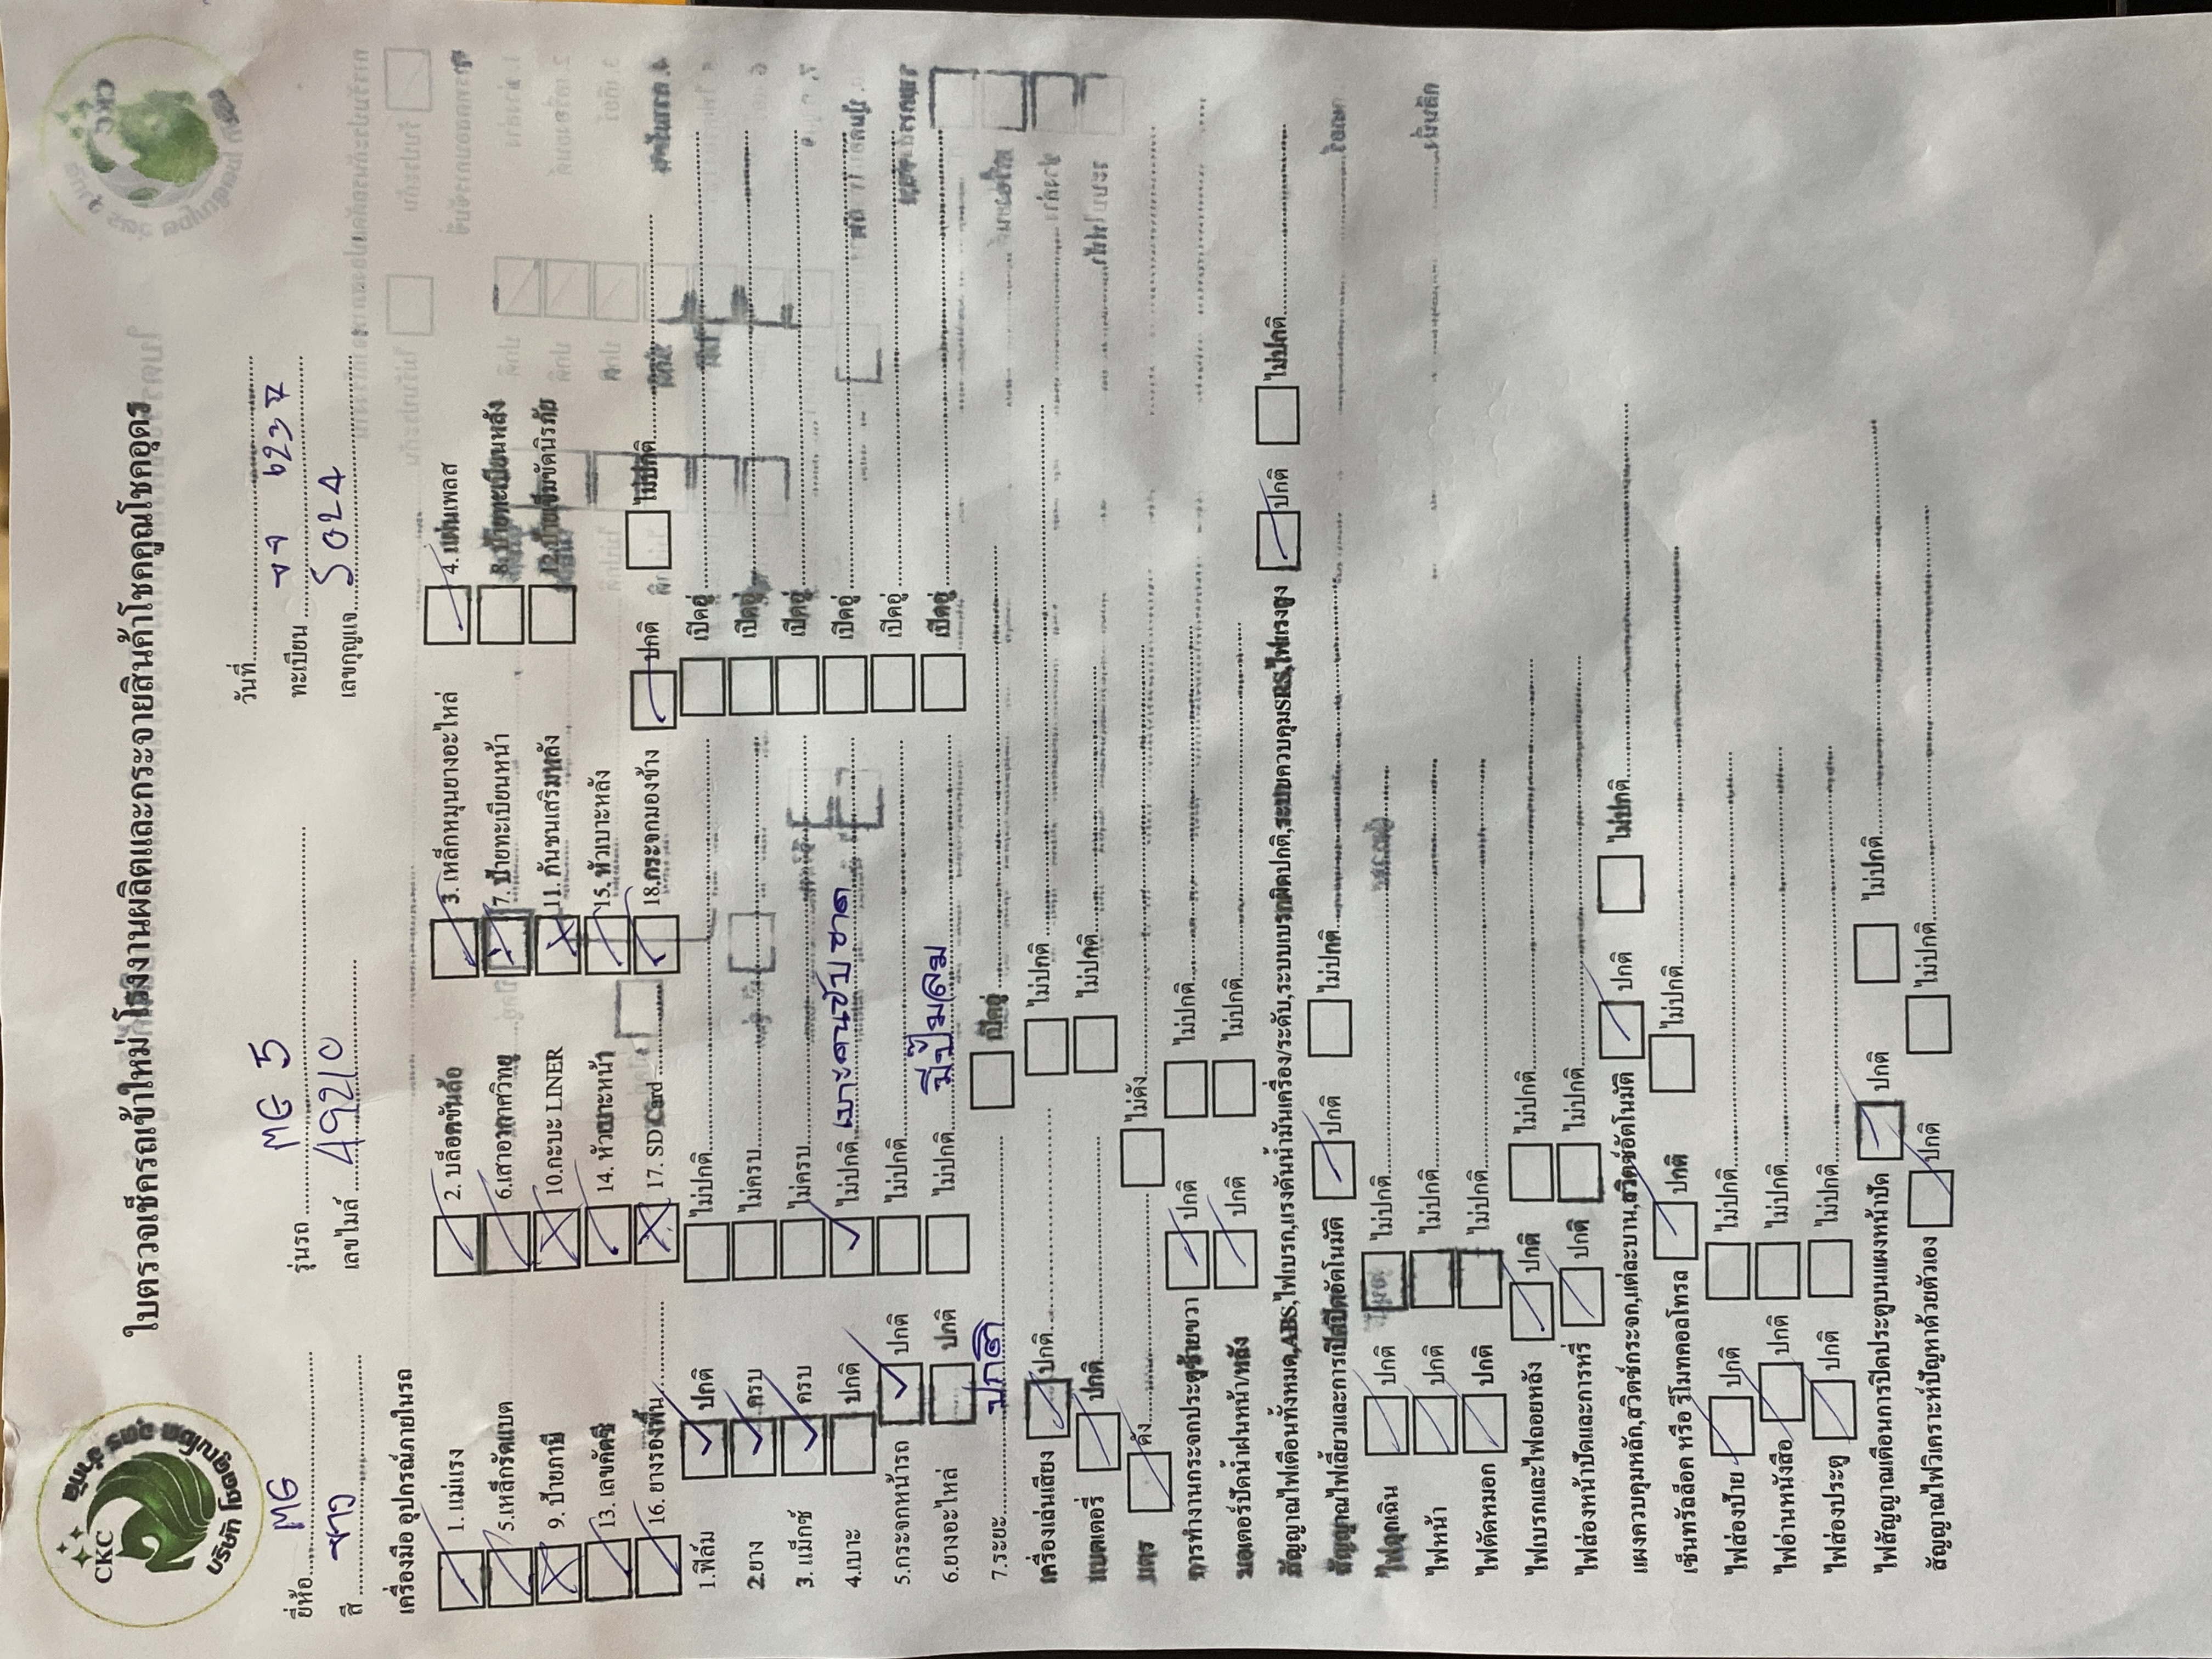 CKC
บริษัท โชคคูณโชค อุดร จำกัด
ใบตรวจเช็ครถเข้าใหม่โรงงานผลิตและกระจายสินค้าโชคคูณโชคอุดร
วันที่
ยี่ห้อ MG รุ่นรถ MG 5 ทะเบียน
สี ขาว เลขไมล์ 49210 เลขกุญแจ 5024
เครื่องมือ อุปกรณ์ภายในรถ
1. แม่แรง 2. บล็อคขันล้อ 3. เหล็กหมุนยางอะไหล่ 4. แผ่นเพลส
5.เหล็กรัดแบต 6.เสาอากาศวิทยุ 7. ป้ายทะเบียนหน้า 8.ป้ายทะเบียนหลัง
9. ป้ายภาษี 10.กะบะ LINER 11. กันชนเสริมหลัง 12.ป้ายเข็มขัดนิรภัย
13. เลขคัตซี 14. หัวเบาะหน้า 15. หัวเบาะหลัง
16. ยางรองพื้น 17. SD Card 18.กระจกมองข้าง ปกติ ไม่ปกติ
1.ฟิล์ม ปกติ ไม่ปกติ เปิดอู่
2.ยาง ครบ ไม่ครบ เปิดอู่
3. แม็กซ์ ครบ ไม่ครบ เปิดอู่
4.เบาะ ปกติ ไม่ปกติ เบาะคนขับ ขาด เปิดอู่
5.กระจกหน้ารถ ปกติ ไม่ปกติ เปิดอู่
6.ยางอะไหล่ ปกติ ไม่ปกติ มีปั๊มลม เปิดอู่
7.ระยะ ปกติ เปิดอู่
เครื่องเล่นเสียง ปกติ ไม่ปกติ
แบตเตอรี่ ปกติ ไม่ปกติ
แตร ดัง ไม่ดัง
การทำงานกระจกประตูซ้ายขวา ปกติ ไม่ปกติ
มอเตอร์ปัดน้ำฝนหน้า/หลัง ปกติ ไม่ปกติ
สัญญาณไฟเตือนทั้งหมด,ABS,ไฟเบรก,แรงดันน้ำมันเครื่อง/ระดับ,ระบบเบรกผิดปกติ,ระบบควบคุมSRS,ไฟแรงสูง ปกติ ไม่ปกติ
สัญญาณไฟเลี้ยวและการเปิดปิดอัตโนมัติ ปกติ ไม่ปกติ
ไฟฉุกเฉิน ปกติ ไม่ปกติ
ไฟหน้า ปกติ ไม่ปกติ
ไฟตัดหมอก ปกติ ไม่ปกติ
ไฟเบรกและไฟถอยหลัง ปกติ ไม่ปกติ
ไฟส่องหน้าปัดและการหรี่ ปกติ ไม่ปกติ
แผงควบคุมหลัก,สวิตช์กระจก,แต่ละบาน,สวิตช์อัตโนมัติ ปกติ ไม่ปกติ
เซ็นทรัลล็อค หรือ รีโมทคอลโทรล ปกติ ไม่ปกติ
ไฟส่องป้าย ปกติ ไม่ปกติ
ไฟอ่านหนังสือ ปกติ ไม่ปกติ
ไฟส่องประตู ปกติ ไม่ปกติ
ไฟสัญญาณเตือนการปิดประตูบนแผงหน้าปัด ปกติ ไม่ปกติ
สัญญาณไฟวิเคราะห์ปัญหาด้วยตัวเอง ปกติ ไม่ปกติ